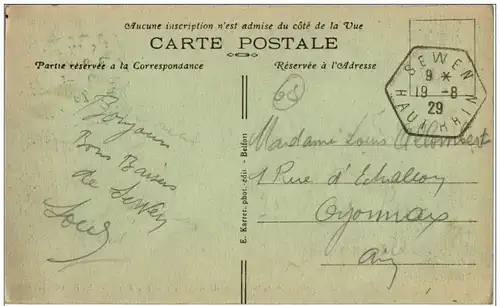 Aucune inscription n'est admise du côté de la Vue
CARTE POSTALE
Partie réservée à la Correspondance
Réservée à l'Adresse
68
68
Bonjour
Bons Baisers
de Sewen
E. Karrer, phot. édit. - Belfort
SEWEN
9 *
19 -8
29
HAUT-RHIN
Madame Louis
1 Rue d'Echallon
Oyonnax
Ain